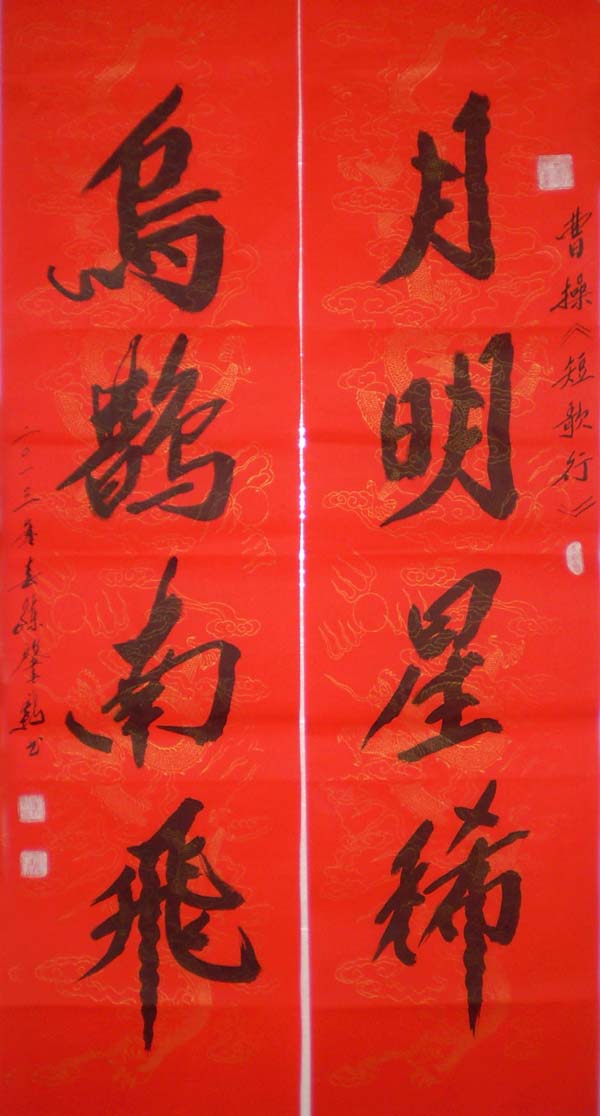 曹操《短歌行》
月明星稀
烏鵲南飛
二〇一三年春孫肇龍书